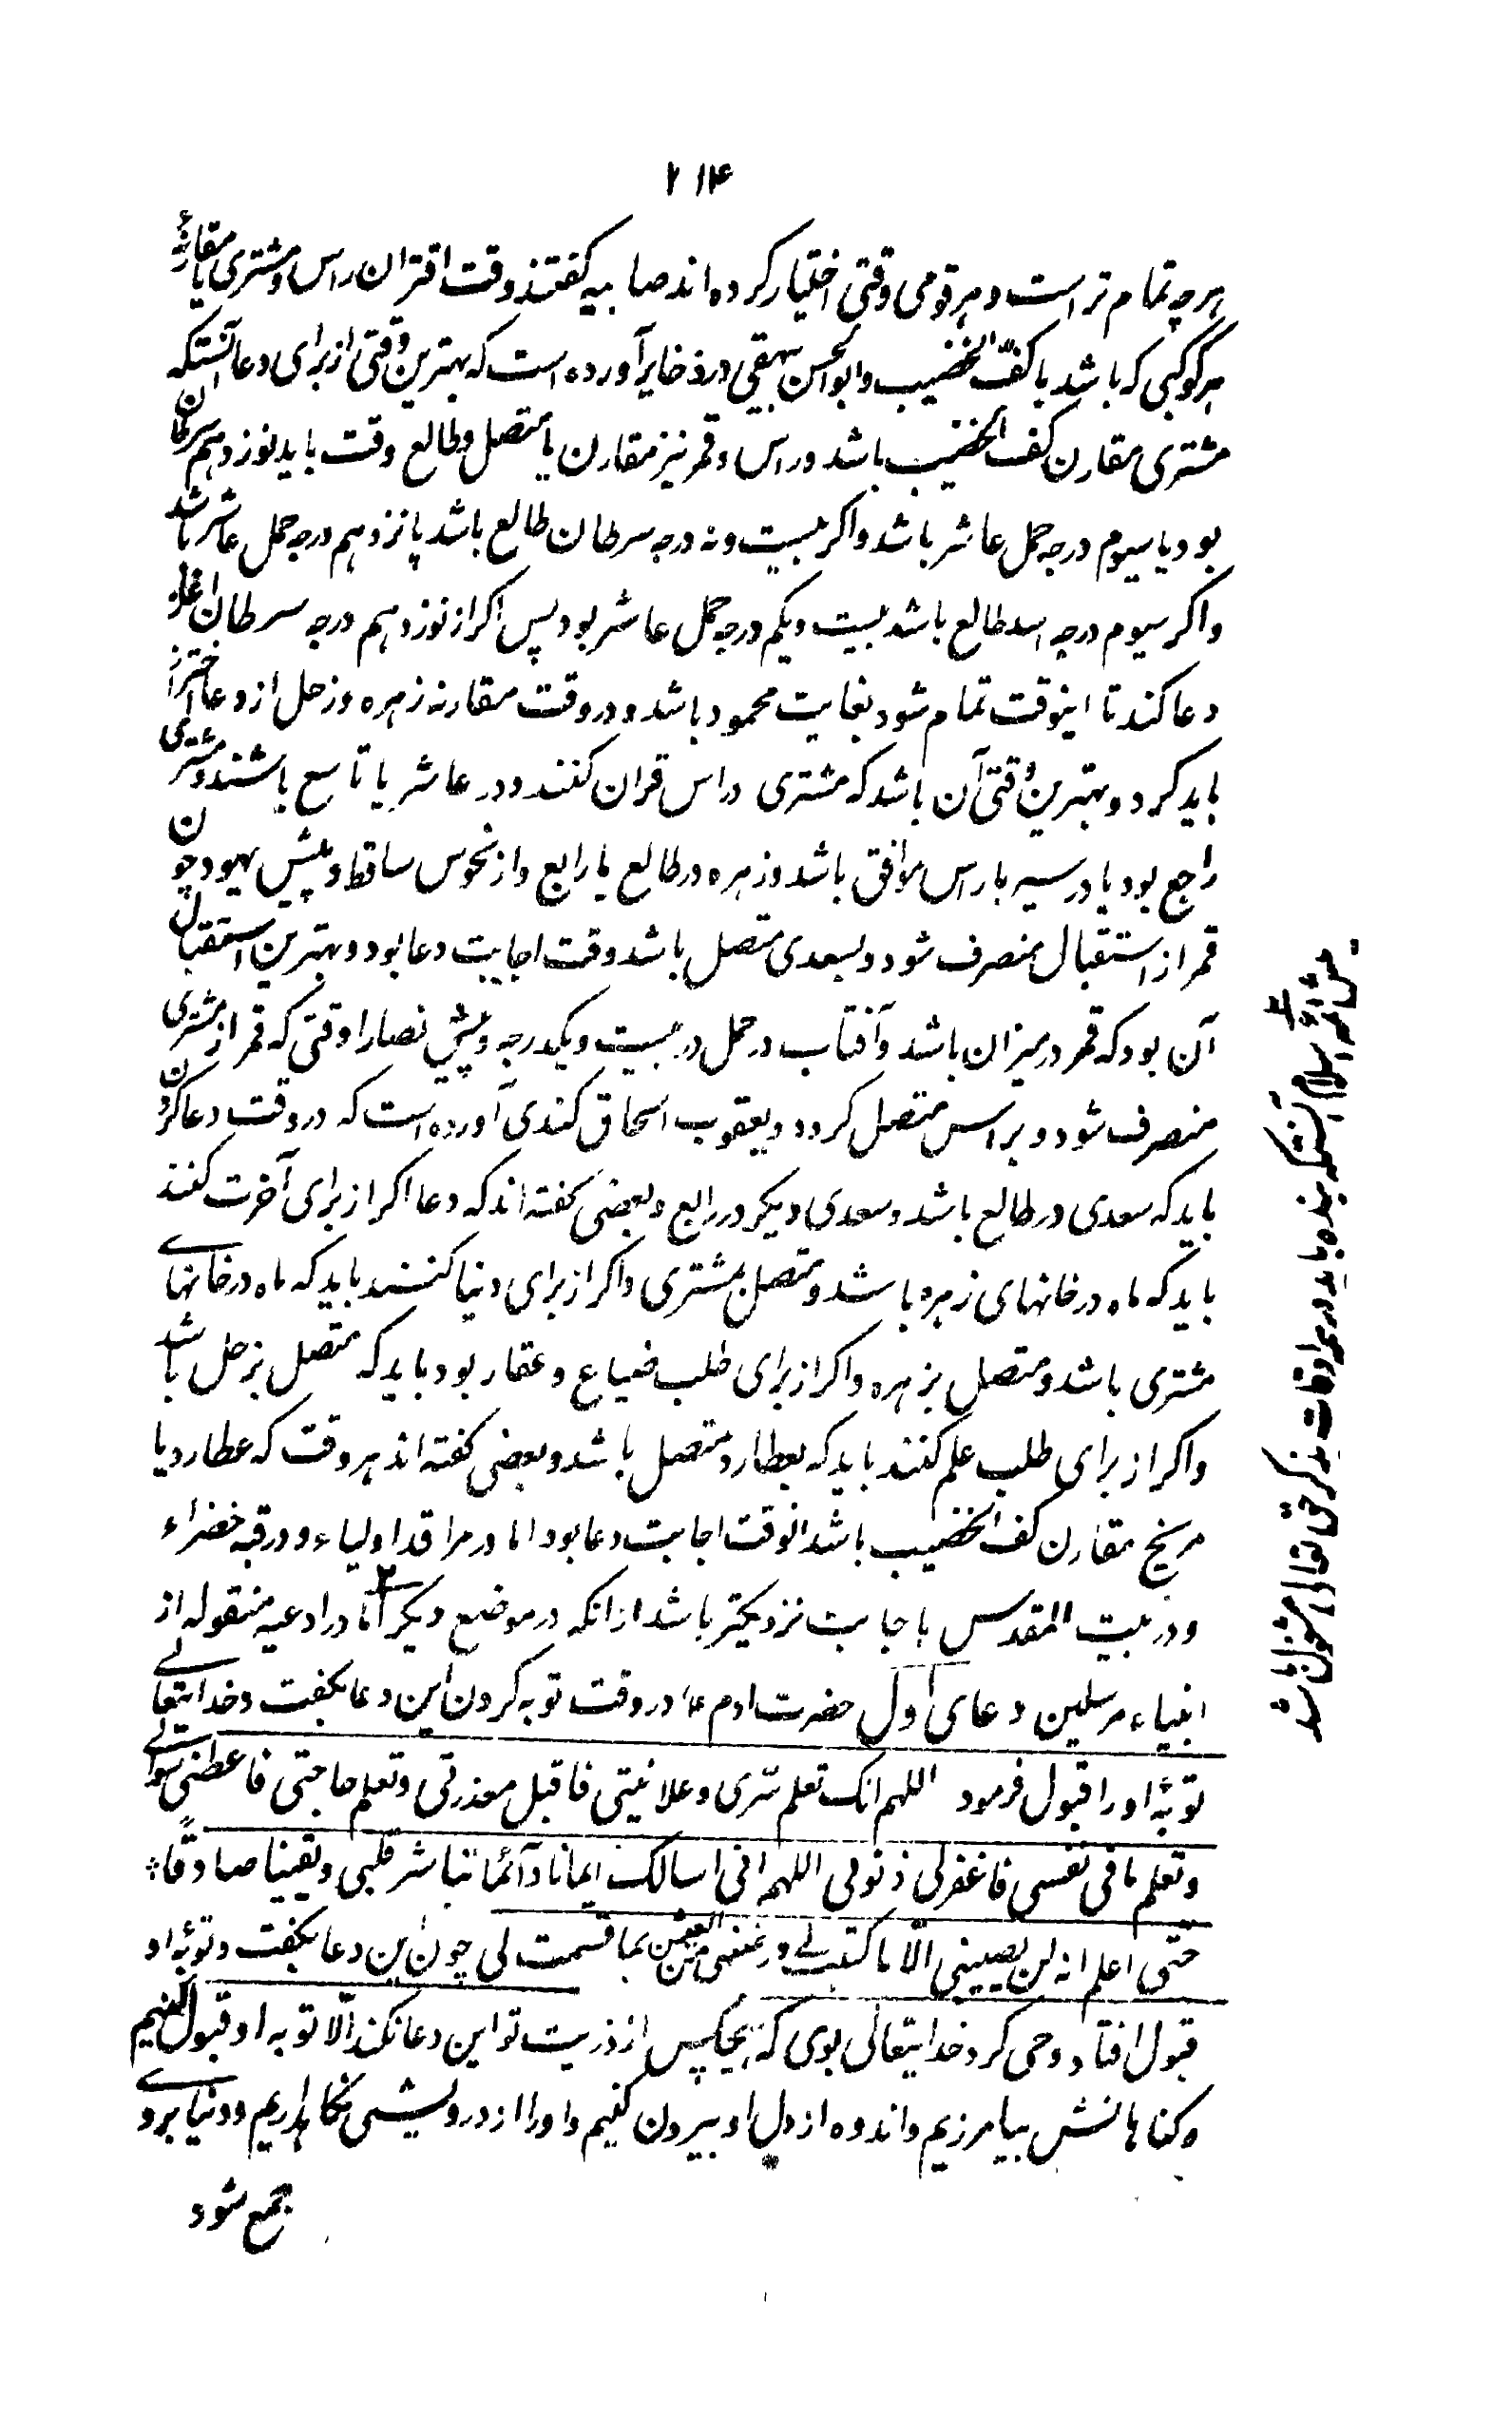 ۲۱۴
هرچه تمام تر است و هر قومی وقتی اختیار کرده اند صابیه کفتند وقت اقتران راس و مشتری یا مقارنهٔ
هر کوکبی که باشد با کفّ الخضیب و ابوالحسن بیهقی در ذخایر آورده است که بهترین وقتی از برای دعا آنستکه
مشتری مقارن کف الخضیب باشد و راس و قمر نیز مقارن یا متصل و طالع وقت باید نوزدهم سرطان
بود یا سیوم درجه حمل عاشر باشد و اکر بیست و نه درجه سرطان طالع باشد پانزدهم درجه حمل عاشر باشد
و اکر سیوم درجه اسد طالع باشد بیست و یکم درجه حمل عاشر بود پس اکر از نوزدهم درجه سرطان اغاز
دعا کند تا اینوقت تمام شود بغایت محمود باشد و در وقت مقارنه زهره و زحل از دعا احتراز
باید کرد و بهترین وقتی آن باشد که مشتری و راس قران کنند و در عاشر یا تاسع باشند و مشتری
راجع بود یا در سیر با راس موافق باشد و زهره در طالع یا رابع و از نحوس ساقط و پیش یهود چون
قمر از استقبال منصرف شود و بسعدی متصل باشد وقت اجابت دعا بود و بهترین استقبال
آن بود که قمر در میزان باشد و آفتاب در حمل در بیست و یکدرجه و پیش نصارا وقتی که قمر از مشتری
منصرف شود و براس متصل کردد و یعقوب اسحاق کندی آورده است که در وقت دعا کردن
باید که سعدی در طالع باشد و سعدی دیکر در رابع و بعضی کفته اند که دعا اکر از برای آخرت کنند
باید که ماه در خانهای زهره باشد و متصل بمشتری و اکر از برای دنیا کنند باید که ماه در خانهای
مشتری باشد و متصل بزهره و اکر از برای طلب ضیاع و عقار بود باید که متصل بزحل باشد
و اکر از برای طلب علم کنند باید که بعطارد متصل باشد و بعضی کفته اند هر وقت که عطارد یا
مریخ مقارن کف الخضیب باشد انوقت اجابت دعا بود اما در مراقد اولیاء و در قبه خضراء
و در بیت المقدس باجابت نزدیکتر باشد از انکه در موضع دیکر ۲ امّا در ادعیه منقوله از
انبیاء مرسلین دعای اول حضرت ادم ع در وقت توبه کردن این دعا بکفت و خدایتعالی
توبهٔ او را قبول فرمود اللهم انک تعلم سّری و علانیتی فاقبل معذرتی و تعلم حاجتی فاعطنی سؤالی
و تعلم ما فی نفسی فاغفرلی ذنوبی اللهم انی اسالک ایمانا دآئما تباشر قلبی و یقینا صادقًا
حتّی اعلم انه لن یصیبنی الّا ما کتبت لی و رضنی من العیش بما قسمت لی چون این دعا بکفت و توبهٔ او
قبول افتاد وحی کرد خدایتعالی بوی که هیچکس از ذریت تو این دعا نکند الّا توبه او قبول کنیم
و کناهانش بیامرزیم و اندوه از دل او بیرون کنیم و او را از درویشی نکاه داریم و دنیا برو
جمع شود
پیش ائمه اسلام آنستکه بنده باید در همه اوقات بذکر حق تعالی مشغول باشد